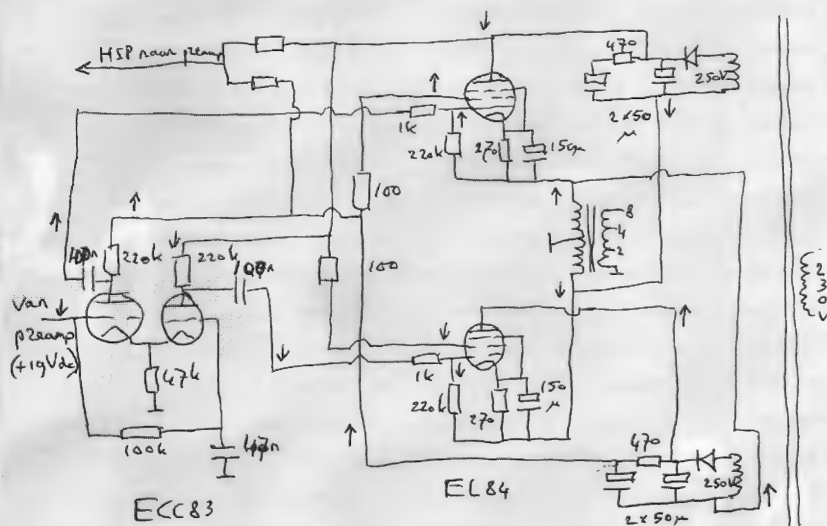 HSP naar preamp
470
250V
2 x 50
μ
1k
220k
270
150μ
100
8
4
2
100n
220k
220k
100n
100
230V
van
preamp
(+19Vdc)
47k
100k
100n
1k
220k
270
150
μ
470
250V
2 x 50μ
ECC83
EL84